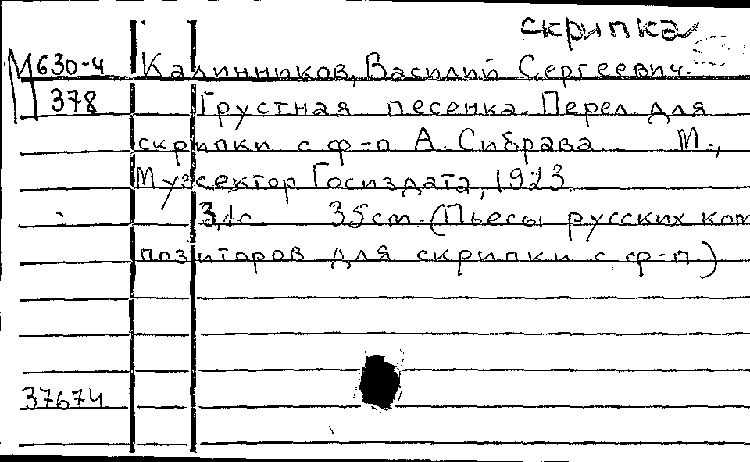 скрипка
М 630-4 Калинников, Василий Сергеевич.
378 Грустная песенка. Перел. для
скрипки с ф-п А. Сибрава М.,
Музсектор Госиздата, 1923
3,1с 35см (Пьесы русских ком
позиторов для скрипки с ф-п.)
37674